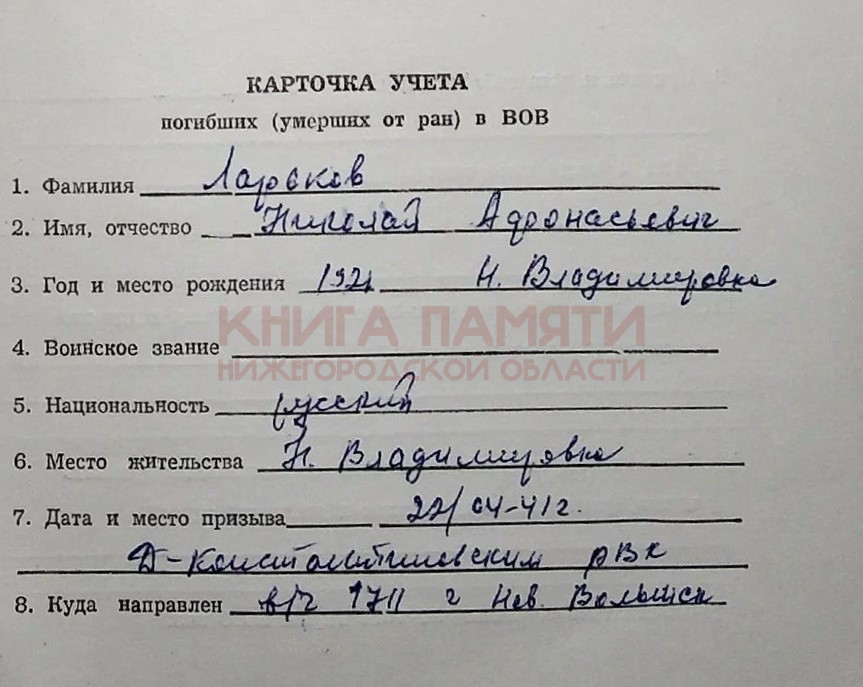 КАРТОЧКА УЧЕТА
погибших (умерших от ран) в ВОВ
1. Фамилия Ларьков
2. Имя, отчество Николай Афонасьевич
3. Год и место рождения 1921 Н. Владимировка
КНИГА ПАМЯТИ
4. Воинское звание
НИЖЕГОРОДСКОЙ ОБЛАСТИ
5. Национальность русский
6. Место жительства Н. Владимировка
7. Дата и место призыва 22/04-41г.
Д-Константиновским рвк
8. Куда направлен в/ч 1711 г Нов. Волынск